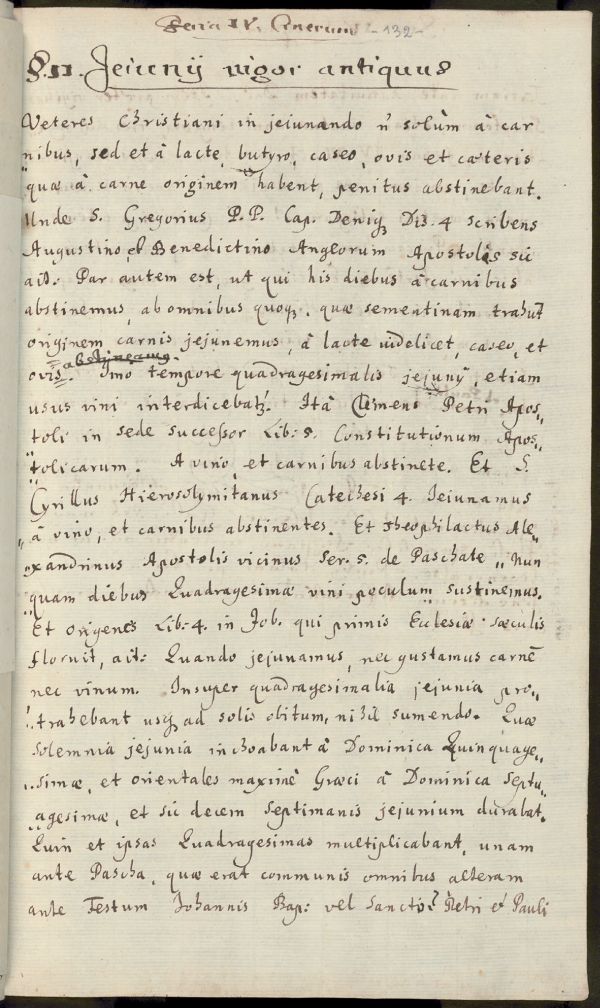 Feria IV. Cinerum -132-
§. II. Jeiunij vigor antiquus
Veteres Christiani in jeiunando n̄ solùm â car
nibus, sed et â lacte, butyro, caseo, ovis et cæteris
quæ â carne originem habent, penitus abstinebant.
Unde S. Gregorius P. P. Cap. Deniq Dis. 4 scribens
Augustino, et Benedictino Angorum Apostolis sic
ait: Par autem est, ut qui his diebus â carnibus
abstinemus, ab omnibus quoq. quæ sementinam trahut̄
originem carnis jejunemus, â lacte videlicet, caseo, et
ovis. Imo tempore quadragesimalis jejunij, etiam
usus vini interdicebat. Itâ Clemens Petri Apos„
toli in sede successor Lib: 8. Constitutionum Apos„
„tolicarum. A vino, et carnibus abstinete. Et S.
Cyrillus Hierosolymitanus Catechesi 4. Jeiunamus
„â vino, et carnibus abstinentes. Et Theophilactus Ale„
„xandrinus Apostolis vicinus Ser. 5. de Paschate „Nun
quam diebus Quadragesimæ vini peculum sustinemus.
Et Origenes Lib: 4. in Job. qui primis Ecclesiæ sæculis
floruit, ait: Quando jejunamus, nec gustamus carnē
nec vinum. Insuper quadragesimalia jejunia pro„
„trahebant usq ad solis obitum, nihil sumendo. Quæ
solemnia jejunia inchoabant â Dominica Quinquage„
„simæ, et orientales maximè Græci â Dominica Septu„
„agesimæ, et sic decem septimanis jejunium durabat.
Quin et ipsas Quadragesimas multiplicabant, unam
ante Pascha, quæ erat communis omnibus alteram
ante Festum Johannis Bap: vel Sancto: Petri et Pauli